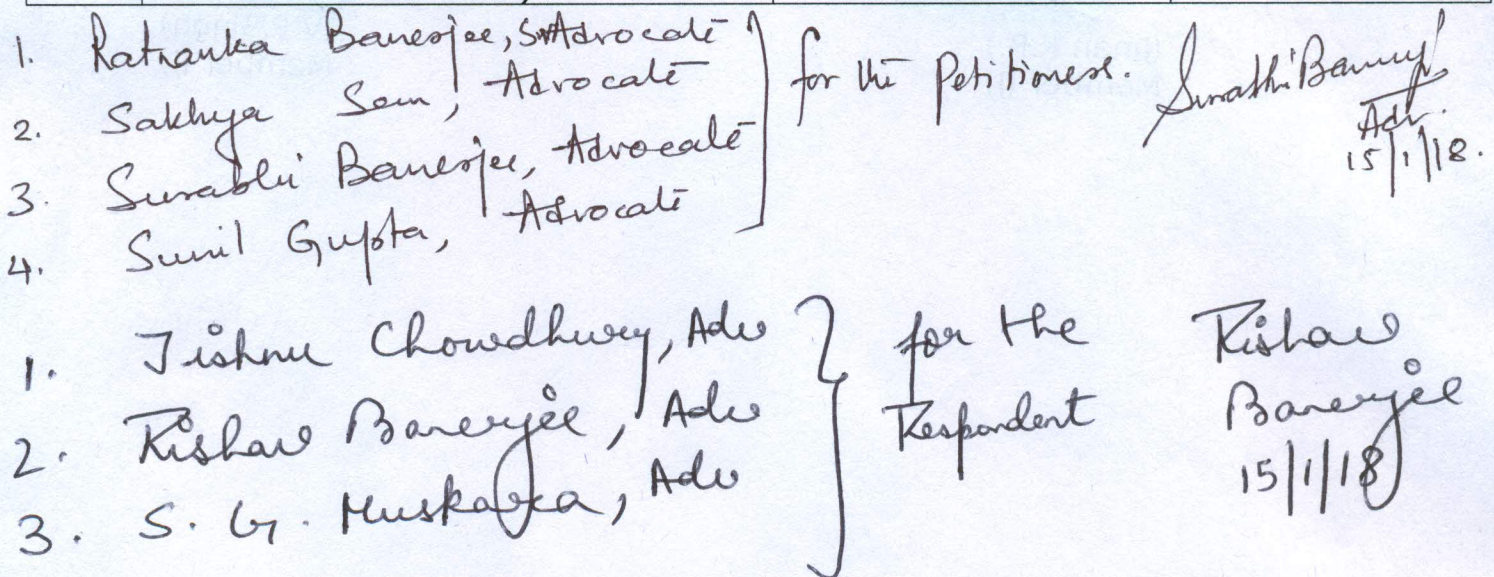 1. Ratnanka Banerjee, Sr Advocate
2. Sakhya Sen, Advocate
3. Surabhi Banerjee, Advocate
4. Sunil Gupta, Advocate
for the Petitioners.
Surabhi Banerjee
Adv.
15/1/18.
1. Jishnu Chowdhury, Adv
2. Rishav Banerjee, Adv
3. S. G. Muskara, Adv
for the
Respondent
Rishav
Banerjee
15/1/18